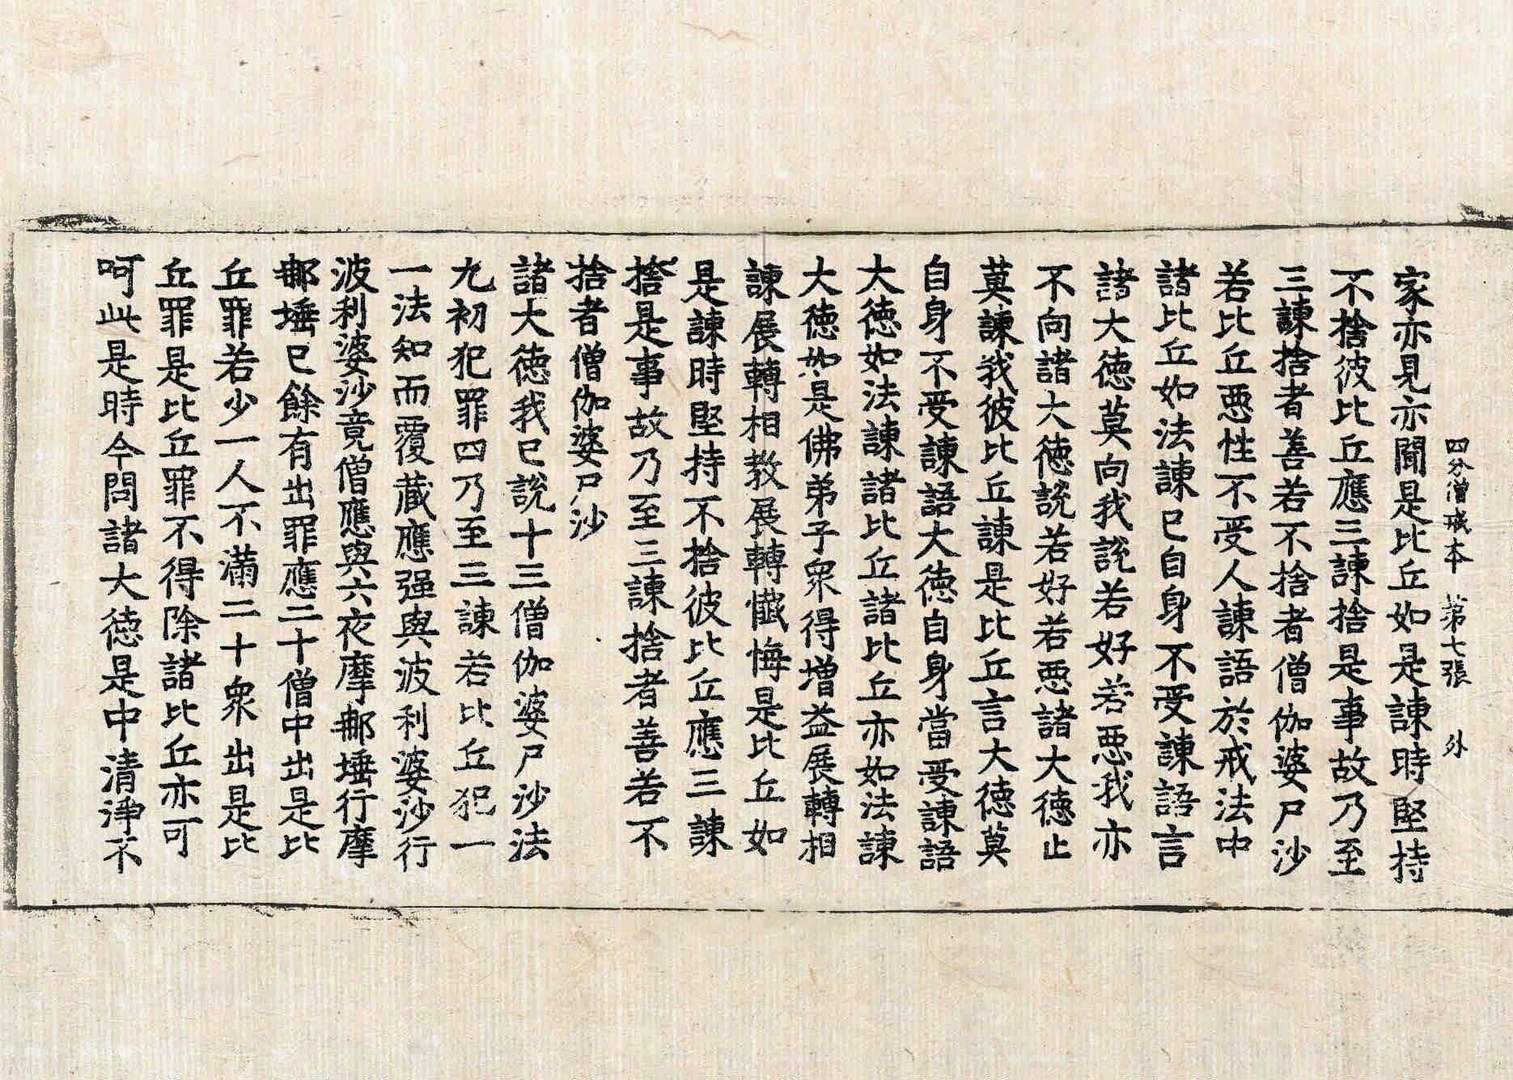 四分僧戒本 第七張 外
家亦見亦聞是比丘如是諫時堅持
不捨彼比丘應三諫捨是事故乃至
三諫捨者善若不捨者僧伽婆尸沙
若比丘惡性不受人諫語於戒法中
諸比丘如法諫已自身不受諫語言
諸大德莫向我說若好若惡我亦
不向諸大德說若好若惡諸大德止
莫諫我彼比丘諫是比丘言大德莫
自身不受諫語大德自身當受諫語
大德如法諫諸比丘諸比丘亦如法諫
大德如是佛弟子衆得增益展轉相
諫展轉相教展轉懺悔是比丘如
是諫時堅持不捨彼比丘應三諫
捨是事故乃至三諫捨者善若不
捨者僧伽婆尸沙
諸大德我已說十三僧伽婆尸沙法
九初犯罪四乃至三諫若比丘犯一
一法知而覆藏應强與波利婆沙行
波利婆沙竟僧應與六夜摩那埵行摩
那埵已餘有出罪應二十僧中出是比
丘罪若少一人不滿二十衆出是比
丘罪是比丘罪不得除諸比丘亦可
呵此是時今問諸大德是中清淨不